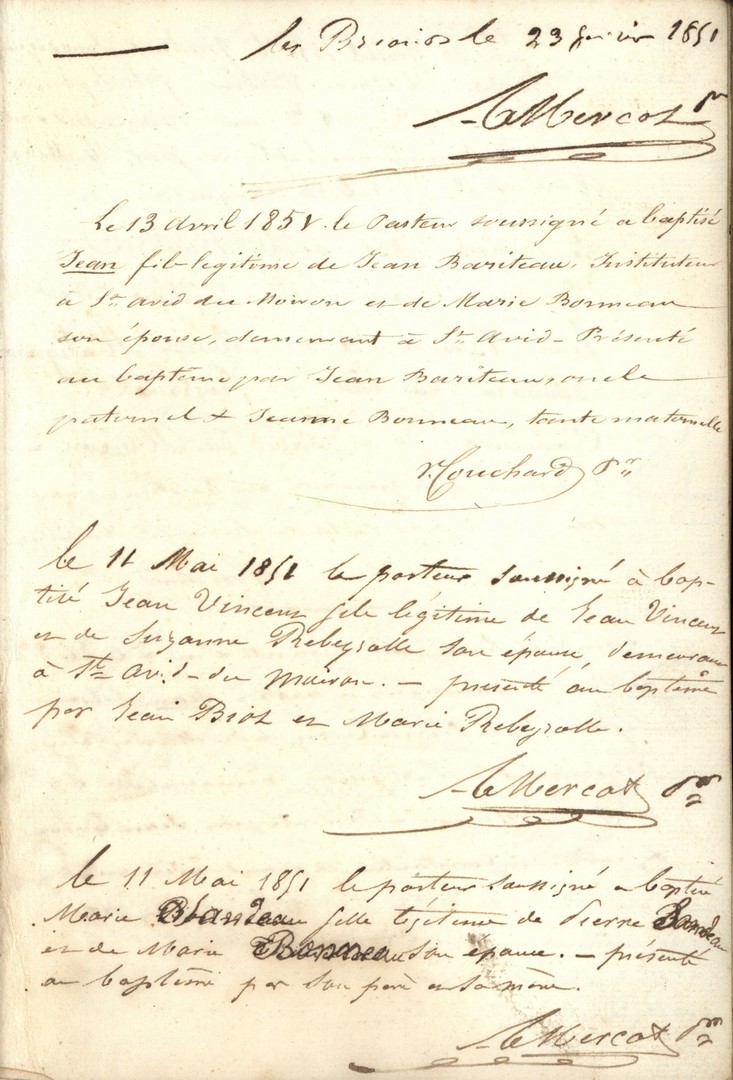 les Briaios le 23 janvier 1851
A Mercat pr
Le 13 avril 1851. le Pasteur soussigné a baptisé
Jean fils legitime de Jean Bariteau, Instituteur
à St. avid du Moiron et de Marie Bonneau
son épouse, demeurant à St. Avid - Présenté
au bapteme par Jean Bariteau oncle
paternel & Jeanne Bonneau, tante maternelle
Couchard pr
le 11 Mai 1851 le pasteur soussigné à bap-
tisé Jean Vincent fils légitime de Jean Vincent
et de Suzanne Rebeyrolle son épouse, demeurant
à St. avid-du moiron. — présenté au baptême
par Jean Biot et Marie Rebeyrolle.
A Mercat pr
le 11 Mai 1851 le pasteur soussigné a baptisé
Marie fille légitime de Pierre
et de Marie Bonneau son épouse. — présenté
au baptême par son père et sa mère.
A Mercat pr